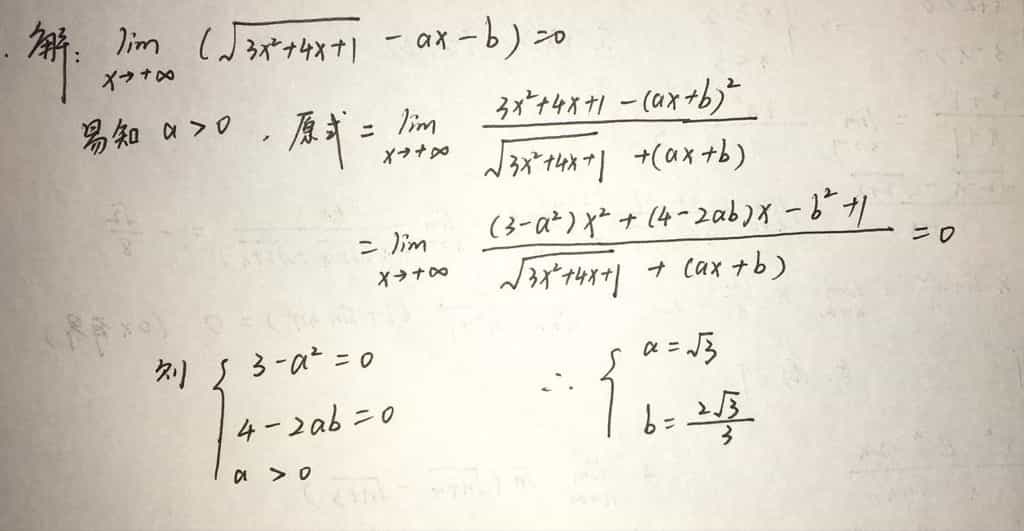 解: lim (√(3x²+4x+1) - ax - b) = 0
x→+∞
易知 a>0 , 原式 = lim (3x²+4x+1-(ax+b)²)/(√(3x²+4x+1) + (ax+b))
x→+∞
= lim ((3-a²)x² + (4-2ab)x - b² + 1)/(√(3x²+4x+1) + (ax+b)) = 0
x→+∞
则 { 3-a² = 0 ∴ { a = √3
4-2ab = 0 b = 2√3/3
a > 0